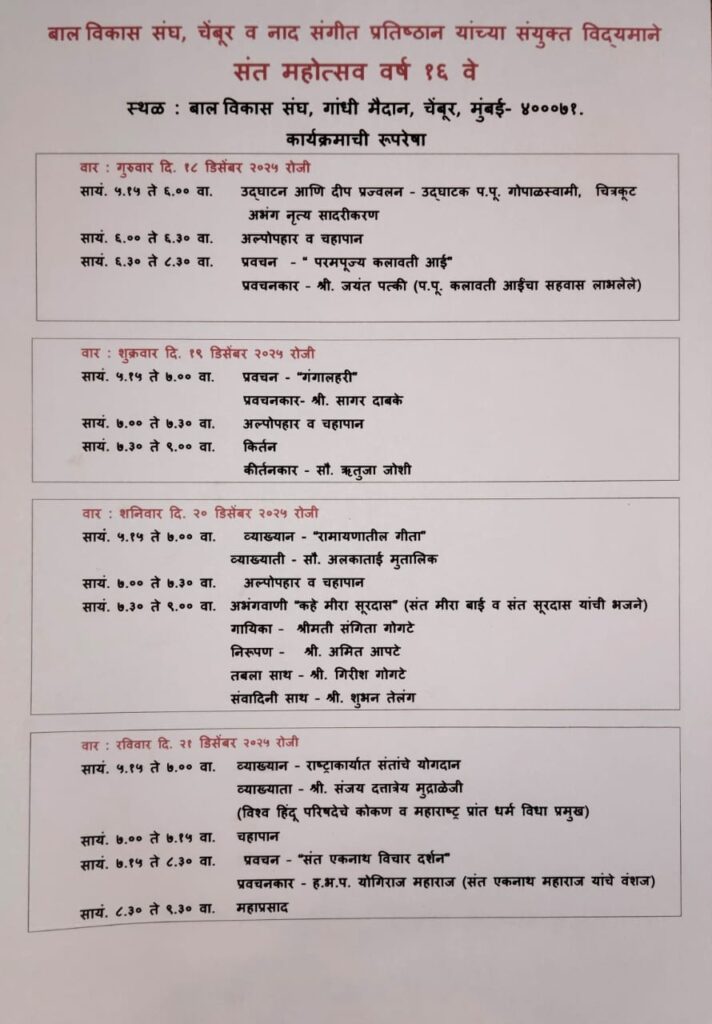 बाल विकास संघ, चेंबूर व नाद संगीत प्रतिष्ठान यांच्या संयुक्त विद्यमाने
संत महोत्सव वर्ष १६ वे
स्थळ : बाल विकास संघ, गांधी मैदान, चेंबूर, मुंबई- ४०००७१.
कार्यक्रमाची रूपरेषा
वार : गुरुवार दि. १८ डिसेंबर २०२५ रोजी
सायं. ५.१५ ते ६.०० वा. उद्घाटन आणि दीप प्रज्वलन - उद्घाटक प.पू. गोपाळस्वामी, चित्रकूट
अभंग नृत्य सादरीकरण
सायं. ६.०० ते ६.३० वा. अल्पोपहार व चहापान
सायं. ६.३० ते ८.३० वा. प्रवचन - " परमपूज्य कलावती आई"
प्रवचनकार - श्री. जयंत पत्की (प.पू. कलावती आईंचा सहवास लाभलेले)
वार : शुक्रवार दि. १९ डिसेंबर २०२५ रोजी
सायं. ५.१५ ते ७.०० वा. प्रवचन - "गंगालहरी"
प्रवचनकार- श्री. सागर दाबके
सायं. ७.०० ते ७.३० वा. अल्पोपहार व चहापान
सायं. ७.३० ते ९.०० वा. किर्तन
कीर्तनकार - सौ. ऋतुजा जोशी
वार : शनिवार दि. २० डिसेंबर २०२५ रोजी
सायं. ५.१५ ते ७.०० वा. व्याख्यान - "रामायणातील गीता"
व्याख्याती - सौ. अलकाताई मुतालिक
सायं. ७.०० ते ७.३० वा. अल्पोपहार व चहापान
सायं. ७.३० ते ९.०० वा. अभंगवाणी "कहे मीरा सूरदास" (संत मीरा बाई व संत सूरदास यांची भजने)
गायिका - श्रीमती संगिता गोगटे
निरूपण - श्री. अमित आपटे
तबला साथ - श्री. गिरीश गोगटे
संवादिनी साथ - श्री. शुभन तेलंग
वार : रविवार दि. २१ डिसेंबर २०२५ रोजी
सायं. ५.१५ ते ७.०० वा. व्याख्यान - राष्ट्राकार्यात संतांचे योगदान
व्याख्याता - श्री. संजय दत्तात्रेय मुद्राळेजी
(विश्व हिंदू परिषदेचे कोकण व महाराष्ट्र प्रांत धर्म विधा प्रमुख)
सायं. ७.०० ते ७.१५ वा. चहापान
सायं. ७.१५ ते ८.३० वा. प्रवचन - "संत एकनाथ विचार दर्शन"
प्रवचनकार - ह.भ.प. योगिराज महाराज (संत एकनाथ महाराज यांचे वंशज)
सायं. ८.३० ते ९.३० वा. महाप्रसाद